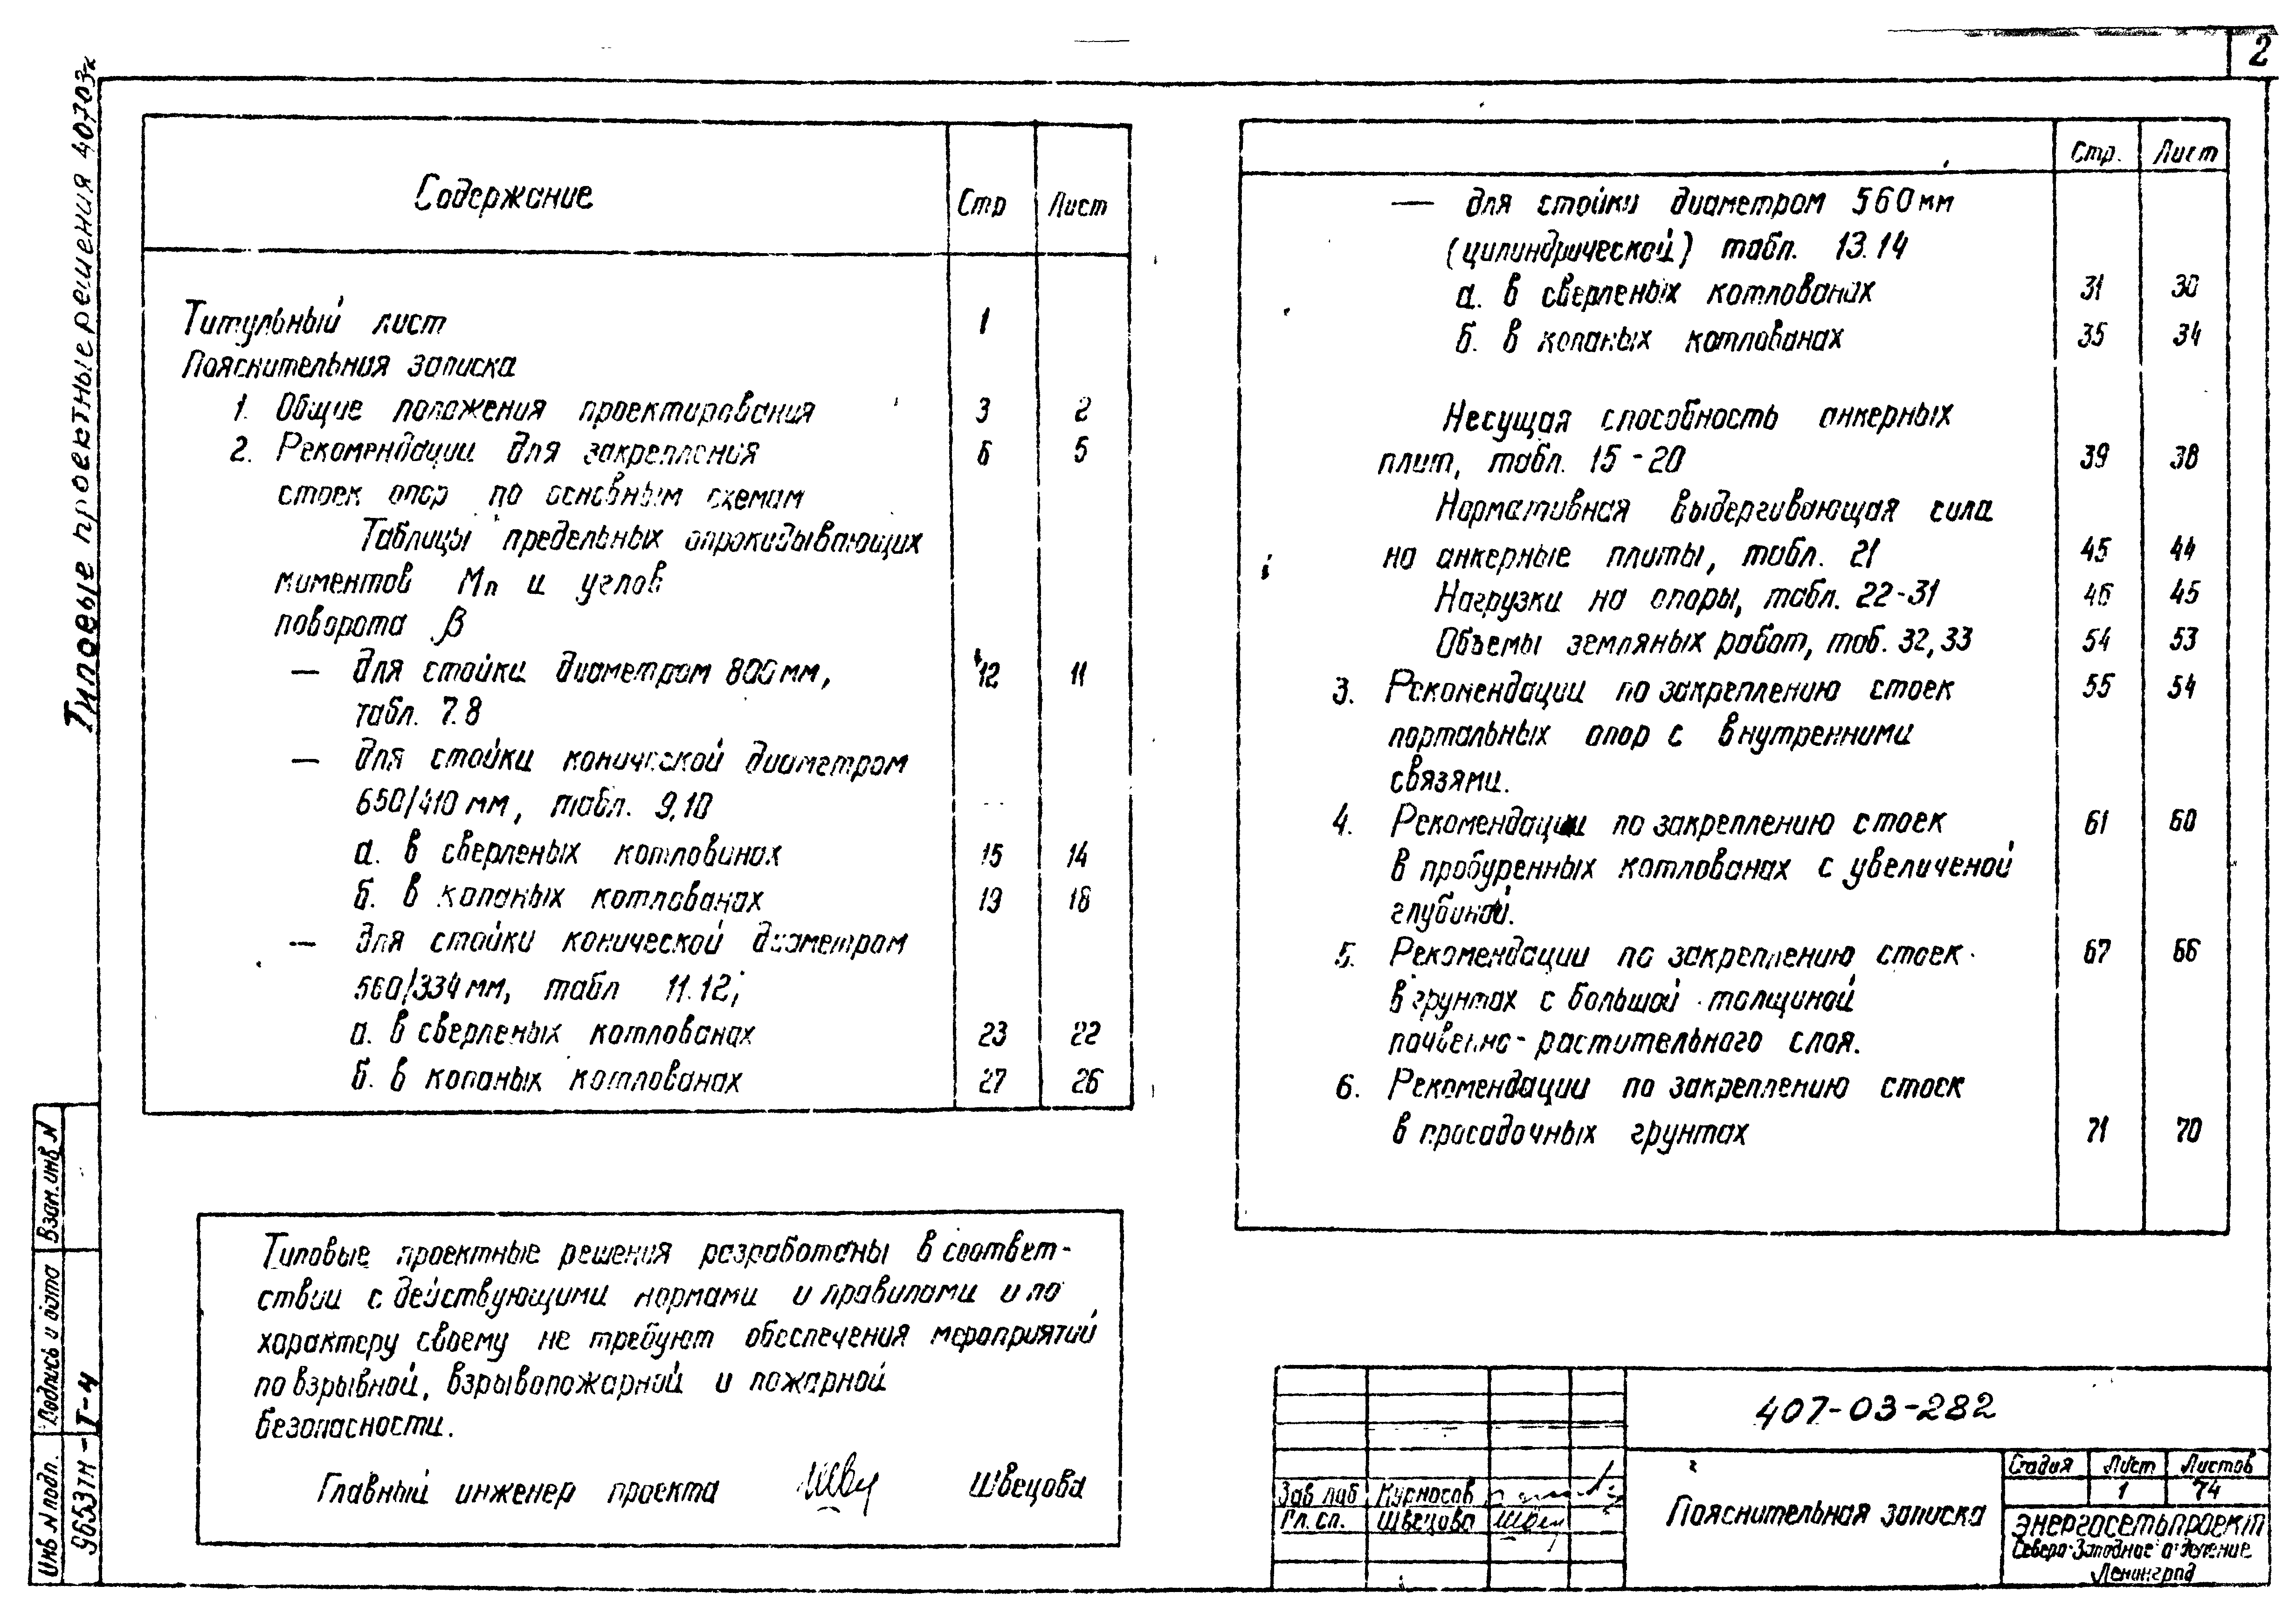 2
Типовые проектные решения 40703х
Содержание Стр Лист
Титульный лист 1
Пояснительная записка
1. Общие положения проектирования 3 2
2. Рекомендации для закрепления 6 5
стоек опор по основным схемам
Таблицы предельных опрокидывающих
моментов Мп и углов
поворота β
— для стойки диаметром 800 мм, 12 11
табл. 7.8
— для стойки конической диаметром
650/410 мм, табл. 9,10
а. в сверленых котлованах 15 14
б. в копаных котлованах 19 18
— для стойки конической диаметром
560/334 мм, табл 11.12;
а. в сверленых котлованах 23 22
б. в копаных котлованах 27 26
Стр. Лист
— для стойки диаметром 560 мм
(цилиндрической) табл. 13.14
а. в сверленых котлованах 31 30
б. в копаных котлованах 35 34
Несущая способность анкерных
плит, табл. 15-20 39 38
Нормативная выдергивающая сила
на анкерные плиты, табл. 21 45 44
Нагрузки на опоры, табл. 22-31 46 45
Объемы земляных работ, таб. 32,33 54 53
3. Рекомендации по закреплению стоек 55 54
портальных опор с внутренними
связями.
4. Рекомендации по закреплению стоек 61 60
в пробуренных котлованах с увеличеной
глубиной.
5. Рекомендации по закреплению стоек 67 66
в грунтах с большой толщиной
почвенно-растительного слоя.
6. Рекомендации по закреплению стоек
в просадочных грунтах 71 70
Типовые проектные решения разработаны в соответ-
ствии с действующими нормами и правилами и по
характеру своему не требуют обеспечения мероприятий
по взрывной, взрывопожарной и пожарной
безопасности.
Главный инженер проекта Швецова
Взам. инв N
Подпись и дата
Инв N подп. 9653тм-Т-4
407-03-282
Стадия Лист Листов
1 74
Зав лаб Курносов
Гл. сп. Швецова
Пояснительная записка
ЭНЕРГОСЕТЬПРОЕКТ
Северо-Западное отделение
Ленинград